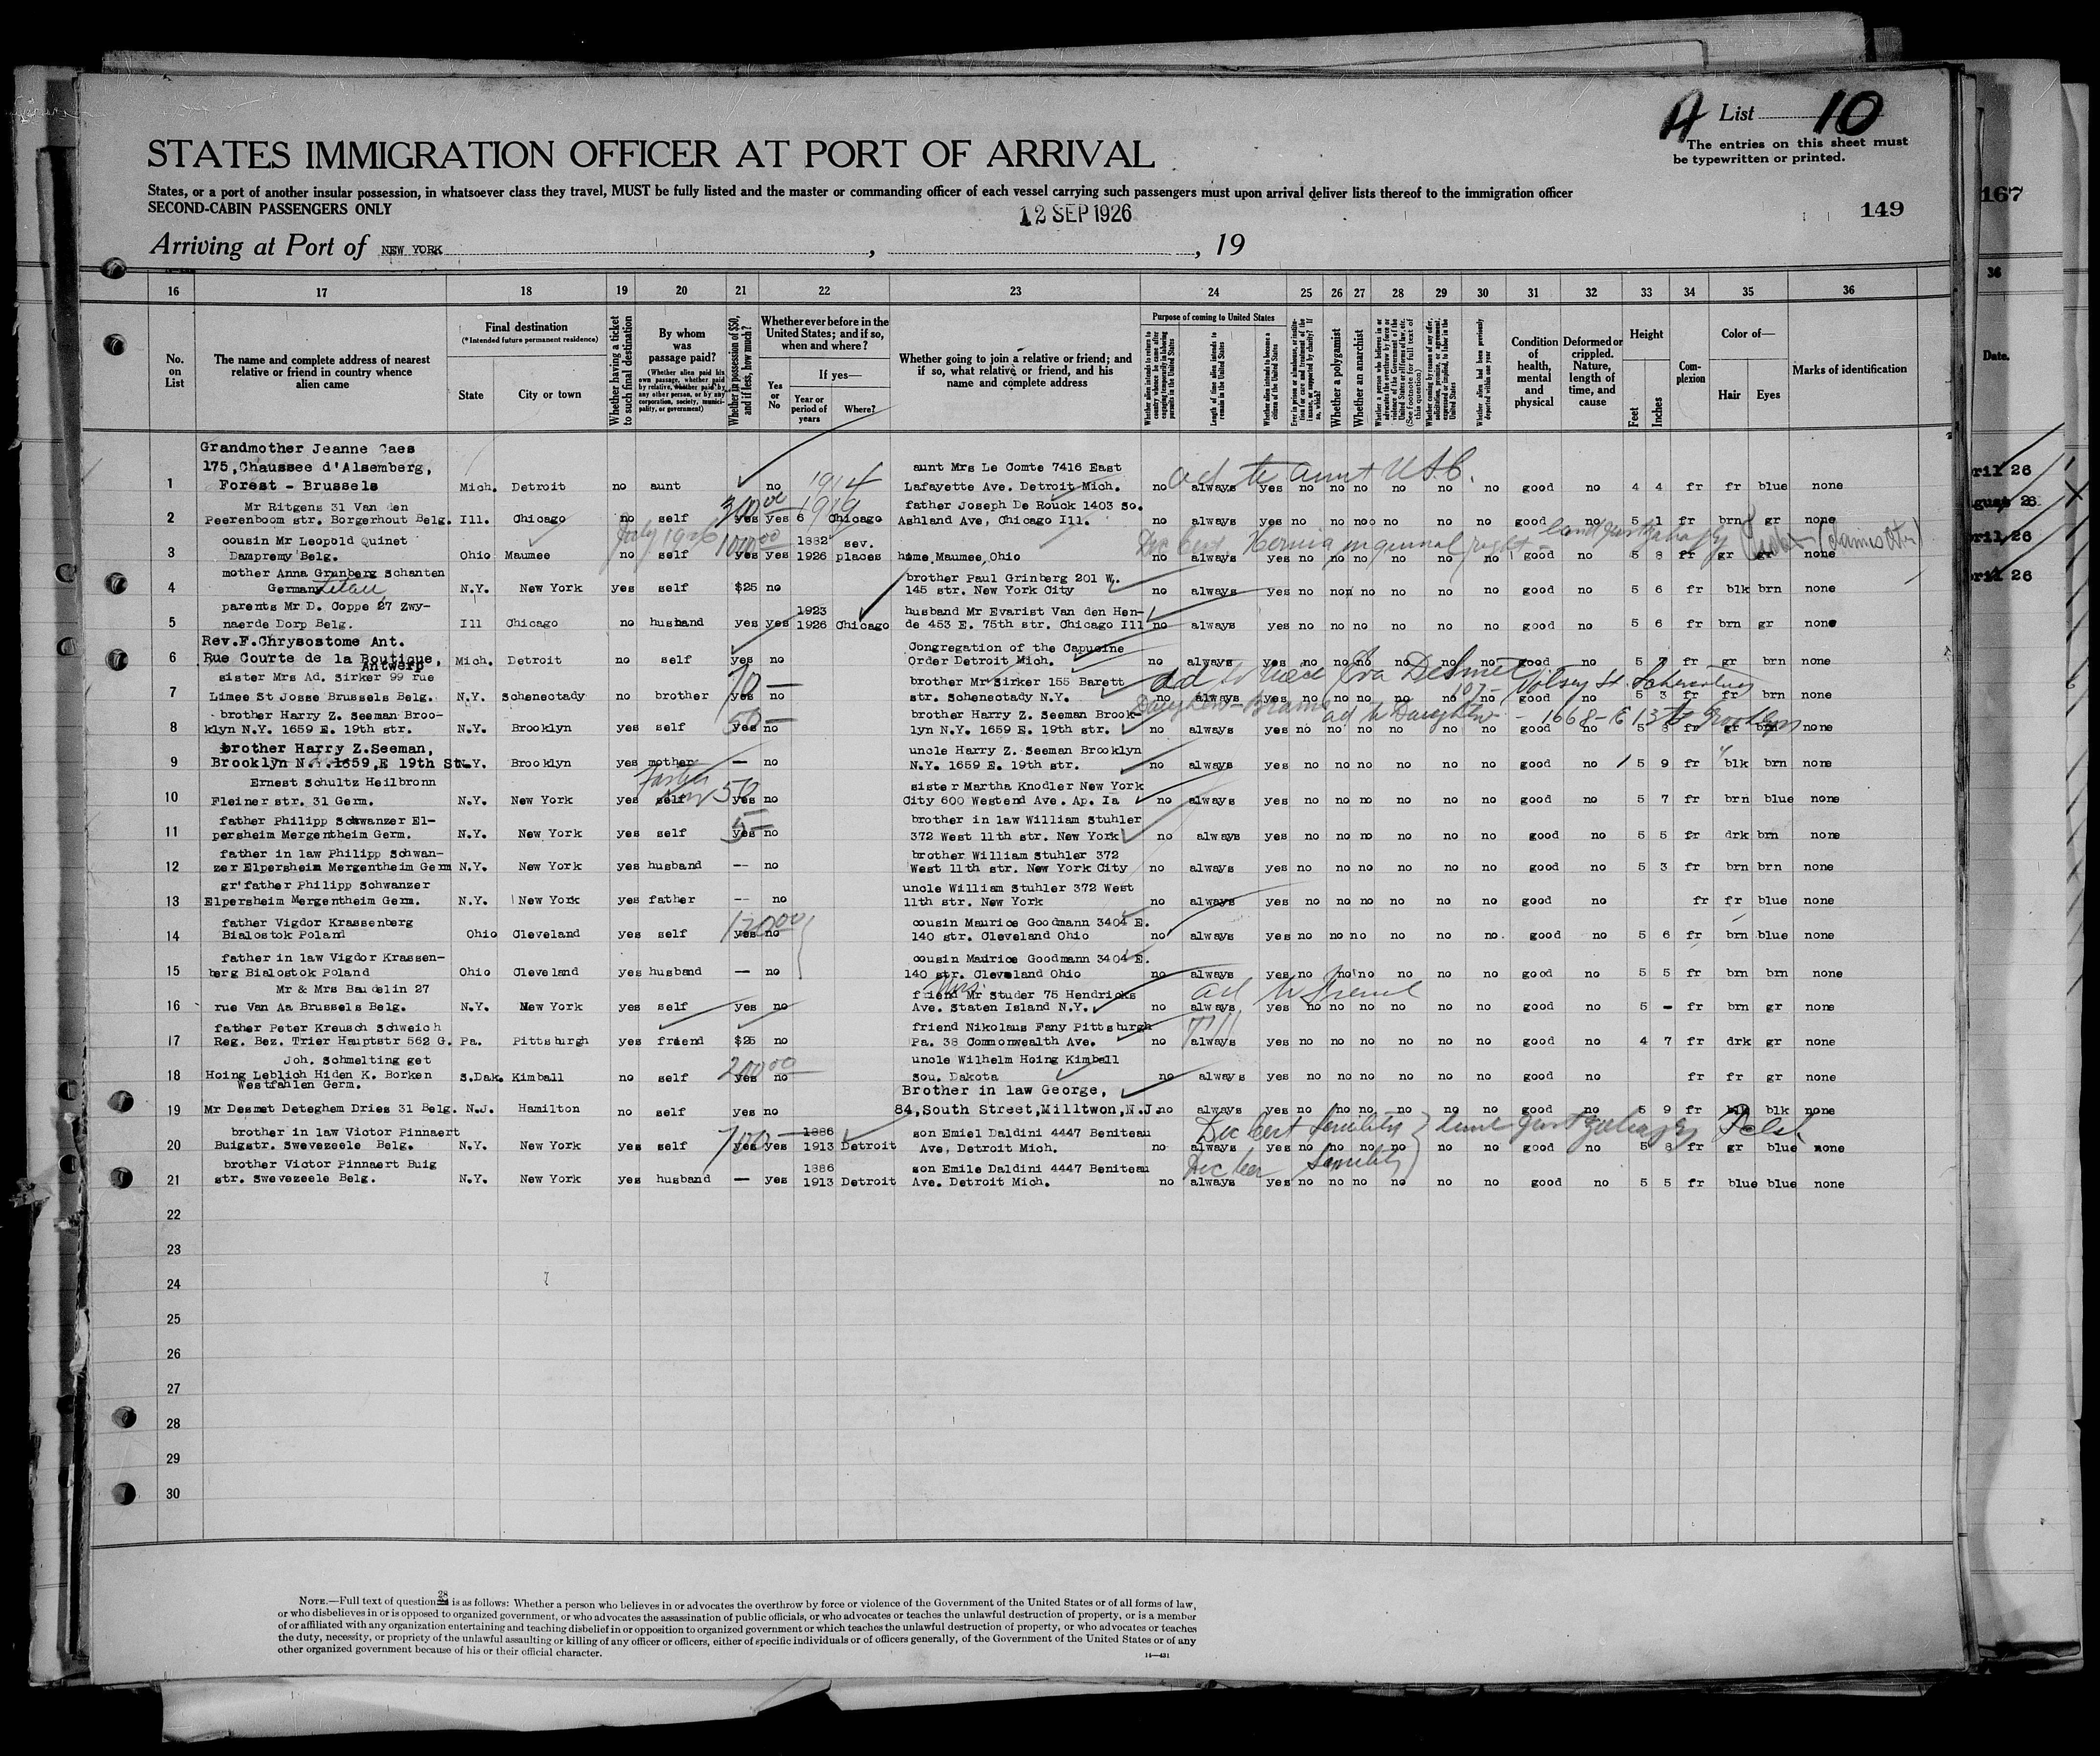 A List 10
The entries on this sheet must
be typewritten or printed.
STATES IMMIGRATION OFFICER AT PORT OF ARRIVAL
States, or a port of another insular possession, in whatsoever class they travel, MUST be fully listed and the master or commanding officer of each vessel carrying such passengers must upon arrival deliver lists thereof to the immigration officer
SECOND-CABIN PASSENGERS ONLY
12 SEP 1926
149
167
Arriving at Port of NEW YORK , , 19
16 17 18 19 20 21 22 23 24 25 26 27 28 29 30 31 32 33 34 35 36
36
Date.
No. on List
The name and complete address of nearest relative or friend in country whence alien came
Final destination
(*Intended future permanent residence)
State
City or town
Whether having a ticket to such final destination
By whom was passage paid?
(Whether alien paid his own passage, whether paid by relative, whether paid by any other person, or by any corporation, society, municipality, or government)
Whether in possession of $50, and if less, how much?
Whether ever before in the United States; and if so, when and where?
Yes or No
If yes—
Year or period of years
Where?
Whether going to join a relative or friend; and if so, what relative or friend, and his name and complete address
Purpose of coming to United States
Length of time alien intends to remain in the United States
Whether alien intends to become a citizen of the United States
Whether a polygamist
Whether an anarchist
Whether alien had been previously deported within one year
Condition of health, mental and physical
Deformed or crippled. Nature, length of time, and cause
Height
Feet
Inches
Complexion
Color of—
Hair
Eyes
Marks of identification
Grandmother Jeanne Caes
175, Chaussee d'Alsemberg, aunt Mrs Le Comte 7416 East ad to aunt U.S.C.
1 Forest - Brussels Mich. Detroit no aunt no 1914 Lafayette Ave. Detroit Mich. no always yes no no no no no no good no 4 4 fr fr blue none
Mr Ritgens 31 Van den 300 00 1919 father Joseph De Rouck 1403 So.
2 Peerenboom str. Borgerhout Belg. Ill. Chicago no self yes yes 6 Chicago Ashland Ave, Chicago Ill. no always yes no no no no no no good no 5 1 fr brn gr none
cousin Mr Leopold Quinet July 1926 1000 00 1882 sev. Hernia inguinal right
3 Dampremy Belg. Ohio Maumee no self yes yes 1926 places home, Maumee, Ohio no always yes no no no no no no good no 5 8 fr gr gr none
mother Anna Grunberg Schanten brother Paul Grinberg 201 W.
4 Germany N.Y. New York yes self $25 no 145 str. New York City no always yes no no no no no no good no 5 6 fr blk brn none
parents Mr D. Coppe 27 Zwy- 1923 husband Mr Evarist Van den Hen-
5 naerde Dorp Belg. Ill Chicago no husband yes yes 1926 Chicago de 453 E. 75th str. Chicago Ill no always yes no no no no no no good no 5 6 fr brn gr none
Rev.F.Chrysostome Ant. Congregation of the Capucine
6 Rue Courte de la Boutique, Mich. Detroit no self yes no Order Detroit Mich. no always yes no no no no no no good no 5 7 fr gr brn none
Antwerp
sister Mrs Ad. Sirker 99 rue 10 — brother Mr Sirker 155 Barett
7 Limee St Josse Brussels Belg. N.Y. Schenectady no brother yes no str. Schenectady N.Y. no always yes no no no no no no good no 5 3 fr fr brn none
brother Harry Z. Seeman Broo- 50 — brother Harry Z. Seeman Brook- ad to Daughter - 1668 - E 13th Brooklyn
8 klyn N.Y. 1659 E. 19th str. N.Y. Brooklyn yes self yes no lyn N.Y. 1659 E. 19th str. no always yes no no no no no no good no 5 8 fr gr brn none
brother Harry Z.Seeman, uncle Harry Z. Seeman Brooklyn
9 Brooklyn N.Y.1659,E 19th St. N.Y. Brooklyn yes mother — no N.Y. 1659 E. 19th str. no always yes no no no no no no good no 5 9 fr blk brn none
Ernest Schultz Heilbronn 50 sister Martha Knodler New York
10 Fleiner str. 31 Germ. N.Y. New York yes self yes no City 600 Westend Ave. Ap. Ia no always yes no no no no no no good no 5 7 fr brn blue none
father Philipp Schwanzer El- 5 — brother in law William Stuhler
11 persheim Mergentheim Germ. N.Y. New York yes self yes no 372 West 11th str. New York no always yes no no no no no no good no 5 5 fr drk brn none
father in law Philipp Schwan- brother William Stuhler 372
12 zer Elpersheim Mergentheim Germ N.Y. New York yes husband -- no West 11th str. New York City no always yes no no no no no no good no 5 3 fr brn brn none
gr'father Philipp Schwanzer uncle William Stuhler 372 West
13 Elpersheim Mergentheim Germ. N.Y. New York yes father -- no 11th str. New York no always yes no no no no no no good no fr fr blue none
father Vigdor Krassenberg cousin Maurice Goodmann 3404 E.
14 Bialostok Poland Ohio Cleveland yes self yes no 140 str. Cleveland Ohio no always yes no no no no no no. good no 5 6 fr brn blue none
father in law Vigdor Krassen- cousin Maurice Goodmann 3404 E.
15 berg Bialostok Poland Ohio Cleveland yes husband — no 140 str. Cleveland Ohio no always yes no no no no no no good no 5 5 fr brn brn none
Mr & Mrs Baudelin 27 Mrs. friend Mr Studer 75 Hendricks ad to friend
16 rue Van Aa Brussels Belg. N.Y. New York yes self yes no Ave. Staten Island N.Y. no always yes no no no no no no good no 5 - fr brn gr none
father Peter Kreusch Schweich friend Nikolaus Fany Pittsburgh
17 Reg. Bez. Trier Hauptstr 562 G. Pa. Pittsburgh yes friend $25 no Pa. 38 Commonwealth Ave. no always yes no no no no no no good no 4 7 fr drk gr none
Joh. Schmelting get 200 00 uncle Wilhelm Hoing Kimball
18 Hoing Leblich Hiden K. Borken S.Dak. Kimball no self yes no Sou. Dakota no always yes no no no no no no good no fr fr gr none
Westfahlen Germ. Brother in law George,
19 Mr Desmet Deteghem Dries 31 Belg. N.J. Hamilton no self yes no 84,South Street,Milltwon,N.J. no always yes no no no no no no good no 5 9 fr blk blk none
brother in law Victor Pinnaert 700 — 1886 son Emiel Daldini 4447 Beniteau Senility
20 Buigstr. Swevezeele Belg. N.Y. New York yes self yes yes 1913 Detroit Ave, Detroit Mich. no always yes no no no no no no good no 5 8 fr gr blue none
brother Victor Pinnaert Buig 1886 son Emile Daldini 4447 Beniteau Senility
21 str. Swevezeele Belg. N.Y. New York yes husband — yes 1913 Detroit Ave. Detroit Mich. no always yes no no no no no no good no 5 5 fr blue blue none
22
23
24
25
26
27
28
29
30
NOTE.—Full text of question 28 is as follows: Whether a person who believes in or advocates the overthrow by force or violence of the Government of the United States or of all forms of law,
or who disbelieves in or is opposed to organized government, or who advocates the assassination of public officials, or who advocates or teaches the unlawful destruction of property, or is a member
of or affiliated with any organization entertaining and teaching disbelief in or opposition to organized government or which teaches the unlawful destruction of property, or who advocates or teaches
the duty, necessity, or propriety of the unlawful assaulting or killing of any officer or officers, either of specific individuals or of officers generally, of the Government of the United States or of any
other organized government because of his or their official character.
14—431